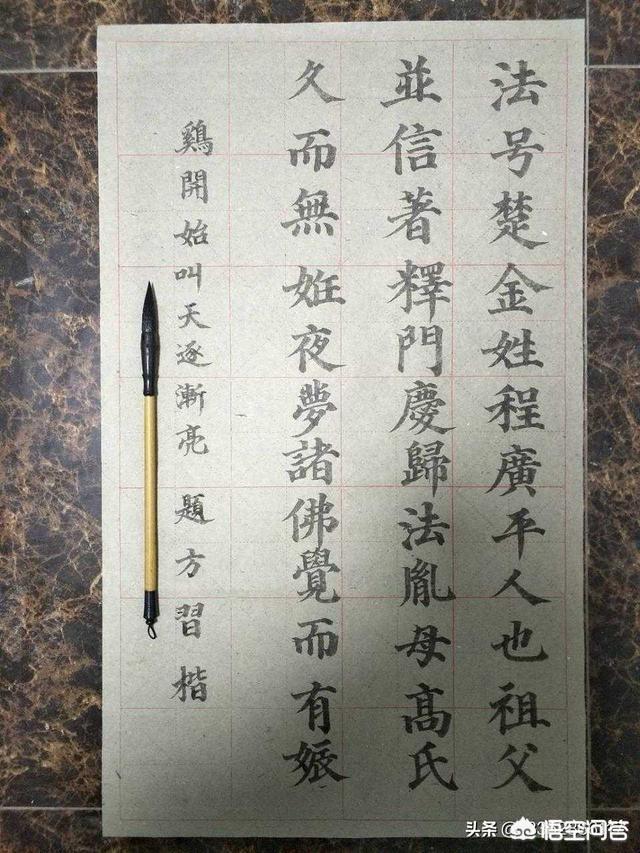 法号楚金姓程廣平人也祖父
並信著釋門慶歸法胤母髙氏
久而無姙夜夢諸佛覺而有娠
鷄開始叫天逐漸亮 題方習楷
头条
悟空问答